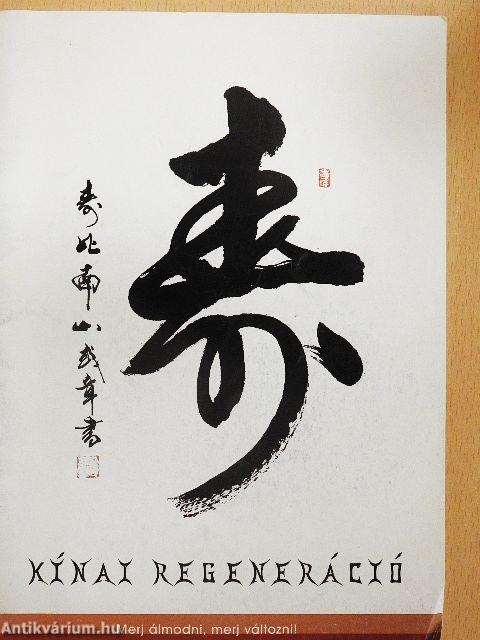 寿
寿比南山武章書
KÍNAI REGENERÁCIÓ
Antikvárium.hu
Merj álmodni, merj változni!